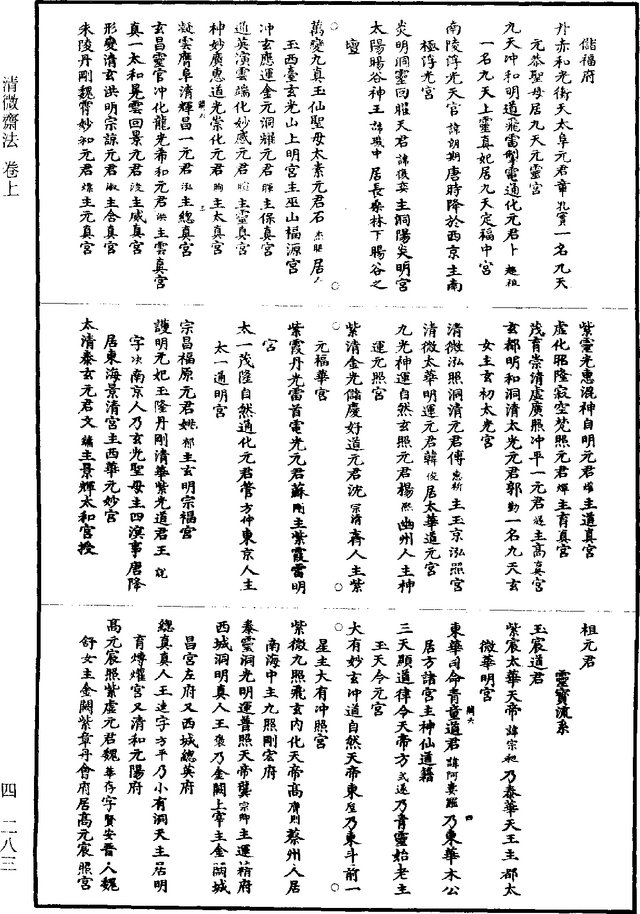 儲福府
丹赤和光衛天太阜元君章 一名九天
元恭聖母居九天元靈宮
九天沖和明道飛雷掣電通化元君卜 趙祖
一名九天上靈真妃居九天定福中宮
南陵浮光天官 諱朗期唐時降於西京主南
極浮光宮
炎明洞靈回耀天君 主洞陽炎明宮
太陽暘谷神王 中居長桑林下暘谷之
壇
萬變九真玉仙聖母太素元君石 居
玉西臺玄光山上明宮主巫山福源宮
沖玄應運金元洞耀元君 主保真宮
通英演雲端化妙感元君 主靈真宮
神妙廣惠道光崇化元君 主太真宮
凝雲膺阜清輝昌一元君 泓主總真宮
玄昌靈官沖化龍光希和元君 主雲真宮
真一太和晃雲回景元君 主威真宮
形變清玄洪明宗諒元君 淑主含真宮
朱陵丹剛魏霄妙和元君 主元真宮
紫霙光惠混神自明元君 主道真宮
虛化昭隆寂空梵照元君 主育真宮
茂育崇清虛廣照沖平一元君 主高真宮
玄都明和洞清太光元君郭 勤一名九天玄
女主玄初太光宮
清微泓照洞清元君傅 主玉京泓照宮
清微太華明運元君韓 俊居太華道元宮
九光神運自然玄照元君楊 熙幽州人主神
運元照宮
紫清金光儲慶好道元君沈 宗清齊人主紫
元福華宮
紫霞丹光雷首電光元君蘇 剛主紫霞雷明
宮
太一茂隆自然通化元君管 方仲東京人主
太一通明宮
宗昌福原元君姚 郁主玄明宗福宮
護明元妃玉隆丹剛清華紫光道君王 說
字次南京人乃玄光聖母主四溟事唐降
居東海景清宮主西華元妙宮
太清泰玄元君文 繡主景輝太和宮授
祖元君
靈寶流系
玉宸道君
紫宸太華天帝 諱宗 乃泰華天王主都太
微華明宮
東華司命青童道君 諱阿 乃東華木公
居方諸宮主神仙道籍
三天顯道律令天帝方 乃青靈始老主
玉天令元宮
大有妙玄沖道自然天帝東 乃東斗前一
星主大有沖照宮
紫微九照飛玄內化天帝高 膺則蔡州人居
南海中主九照剛宏府
泰靈洞光明運普照天帝龔 宗卿主運蒨府
西城洞明真人王 褒乃金闕上宰主金闕城
昌宮左府又西城總英府
總真真人王 遠字方平乃小有洞天主居明
育燁燿宮又清和元陽府
高元宸照紫虛元君魏 華存字賢安晉人魏
舒女主金闕紫章丹會府居高元宸照宮
清微齋法 卷上
四 二八三